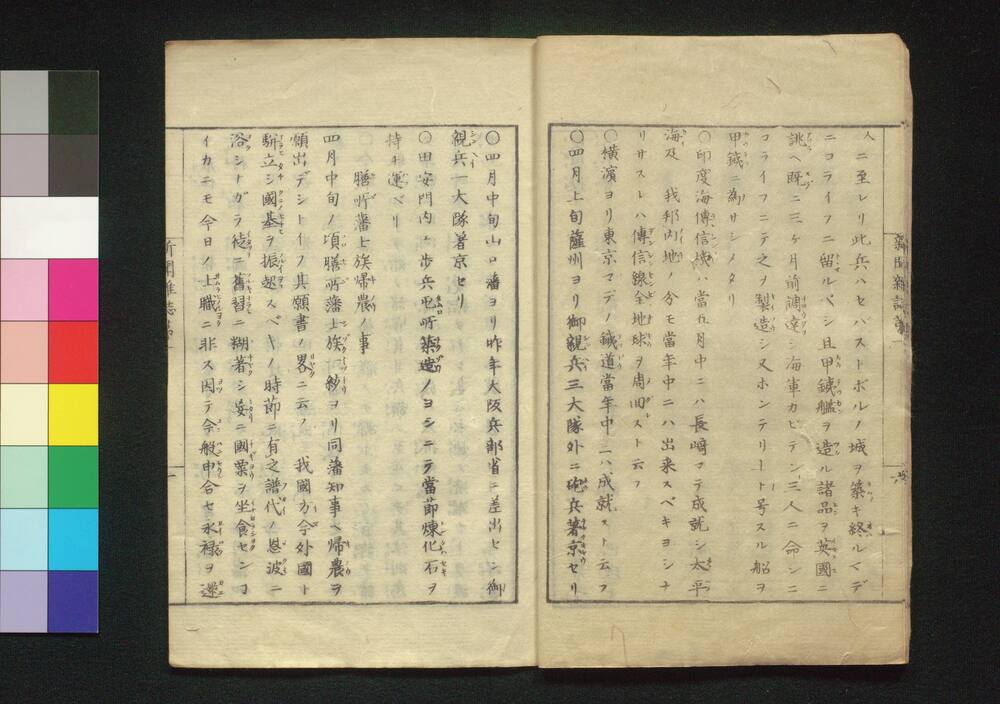 人ニ至レリ此兵ハセバストボルノ城ヲ築キ終ルマデ
ニコライフニ留ルベシ且甲鐵艦ヲ造ル諸品ヲ英國ニ
誂ヘ既ニ三ヶ月前溥達シ海軍カピテン三人ニ命シニ
コライフニテ之ヲ製造シ又ホンテリートト号スル船ヲ
甲鐵ニ為サシメタリ
〇印度海傳信機ハ當五月中ニハ長崎マテ成就シ太平
海及ヒ我邦内地ノ分モ當年中ニハ出来スベキヨシナ
リサスレハ傳信線全地球ヲ周回スト云フ
〇横濱ヨリ東京マデノ鐵道當年中ニハ成就スト云フ
〇四月上旬薩州ヨリ御親兵三大隊外ニ砲兵著京セリ
〇四月中旬山口藩ヨリ昨年大阪兵部省ニ差出セシ御
親兵一大隊著京セリ
〇田安門内ニ歩兵屯所築造ノヨシニテ當節煉化石ヲ
持キ運ベリ
〇膳所藩士族帰農ノ事
四月中旬ノ頃膳所藩士族ヨリ同藩知事ヘ帰農ヲ
願出デシトイフ其願書ノ畧ニ云フ 我國方今外國ト
駢立シ國基ヲ振起スベキノ時節ニ有之譜代ノ恩波ニ
浴シナガラ徒ニ舊習ニ糊著シ妄ニ國粟ヲ坐食センコ
イカニモ今日ノ上職ニ非ス因テ今般申合セ永禄ヲ還
新聞雜誌